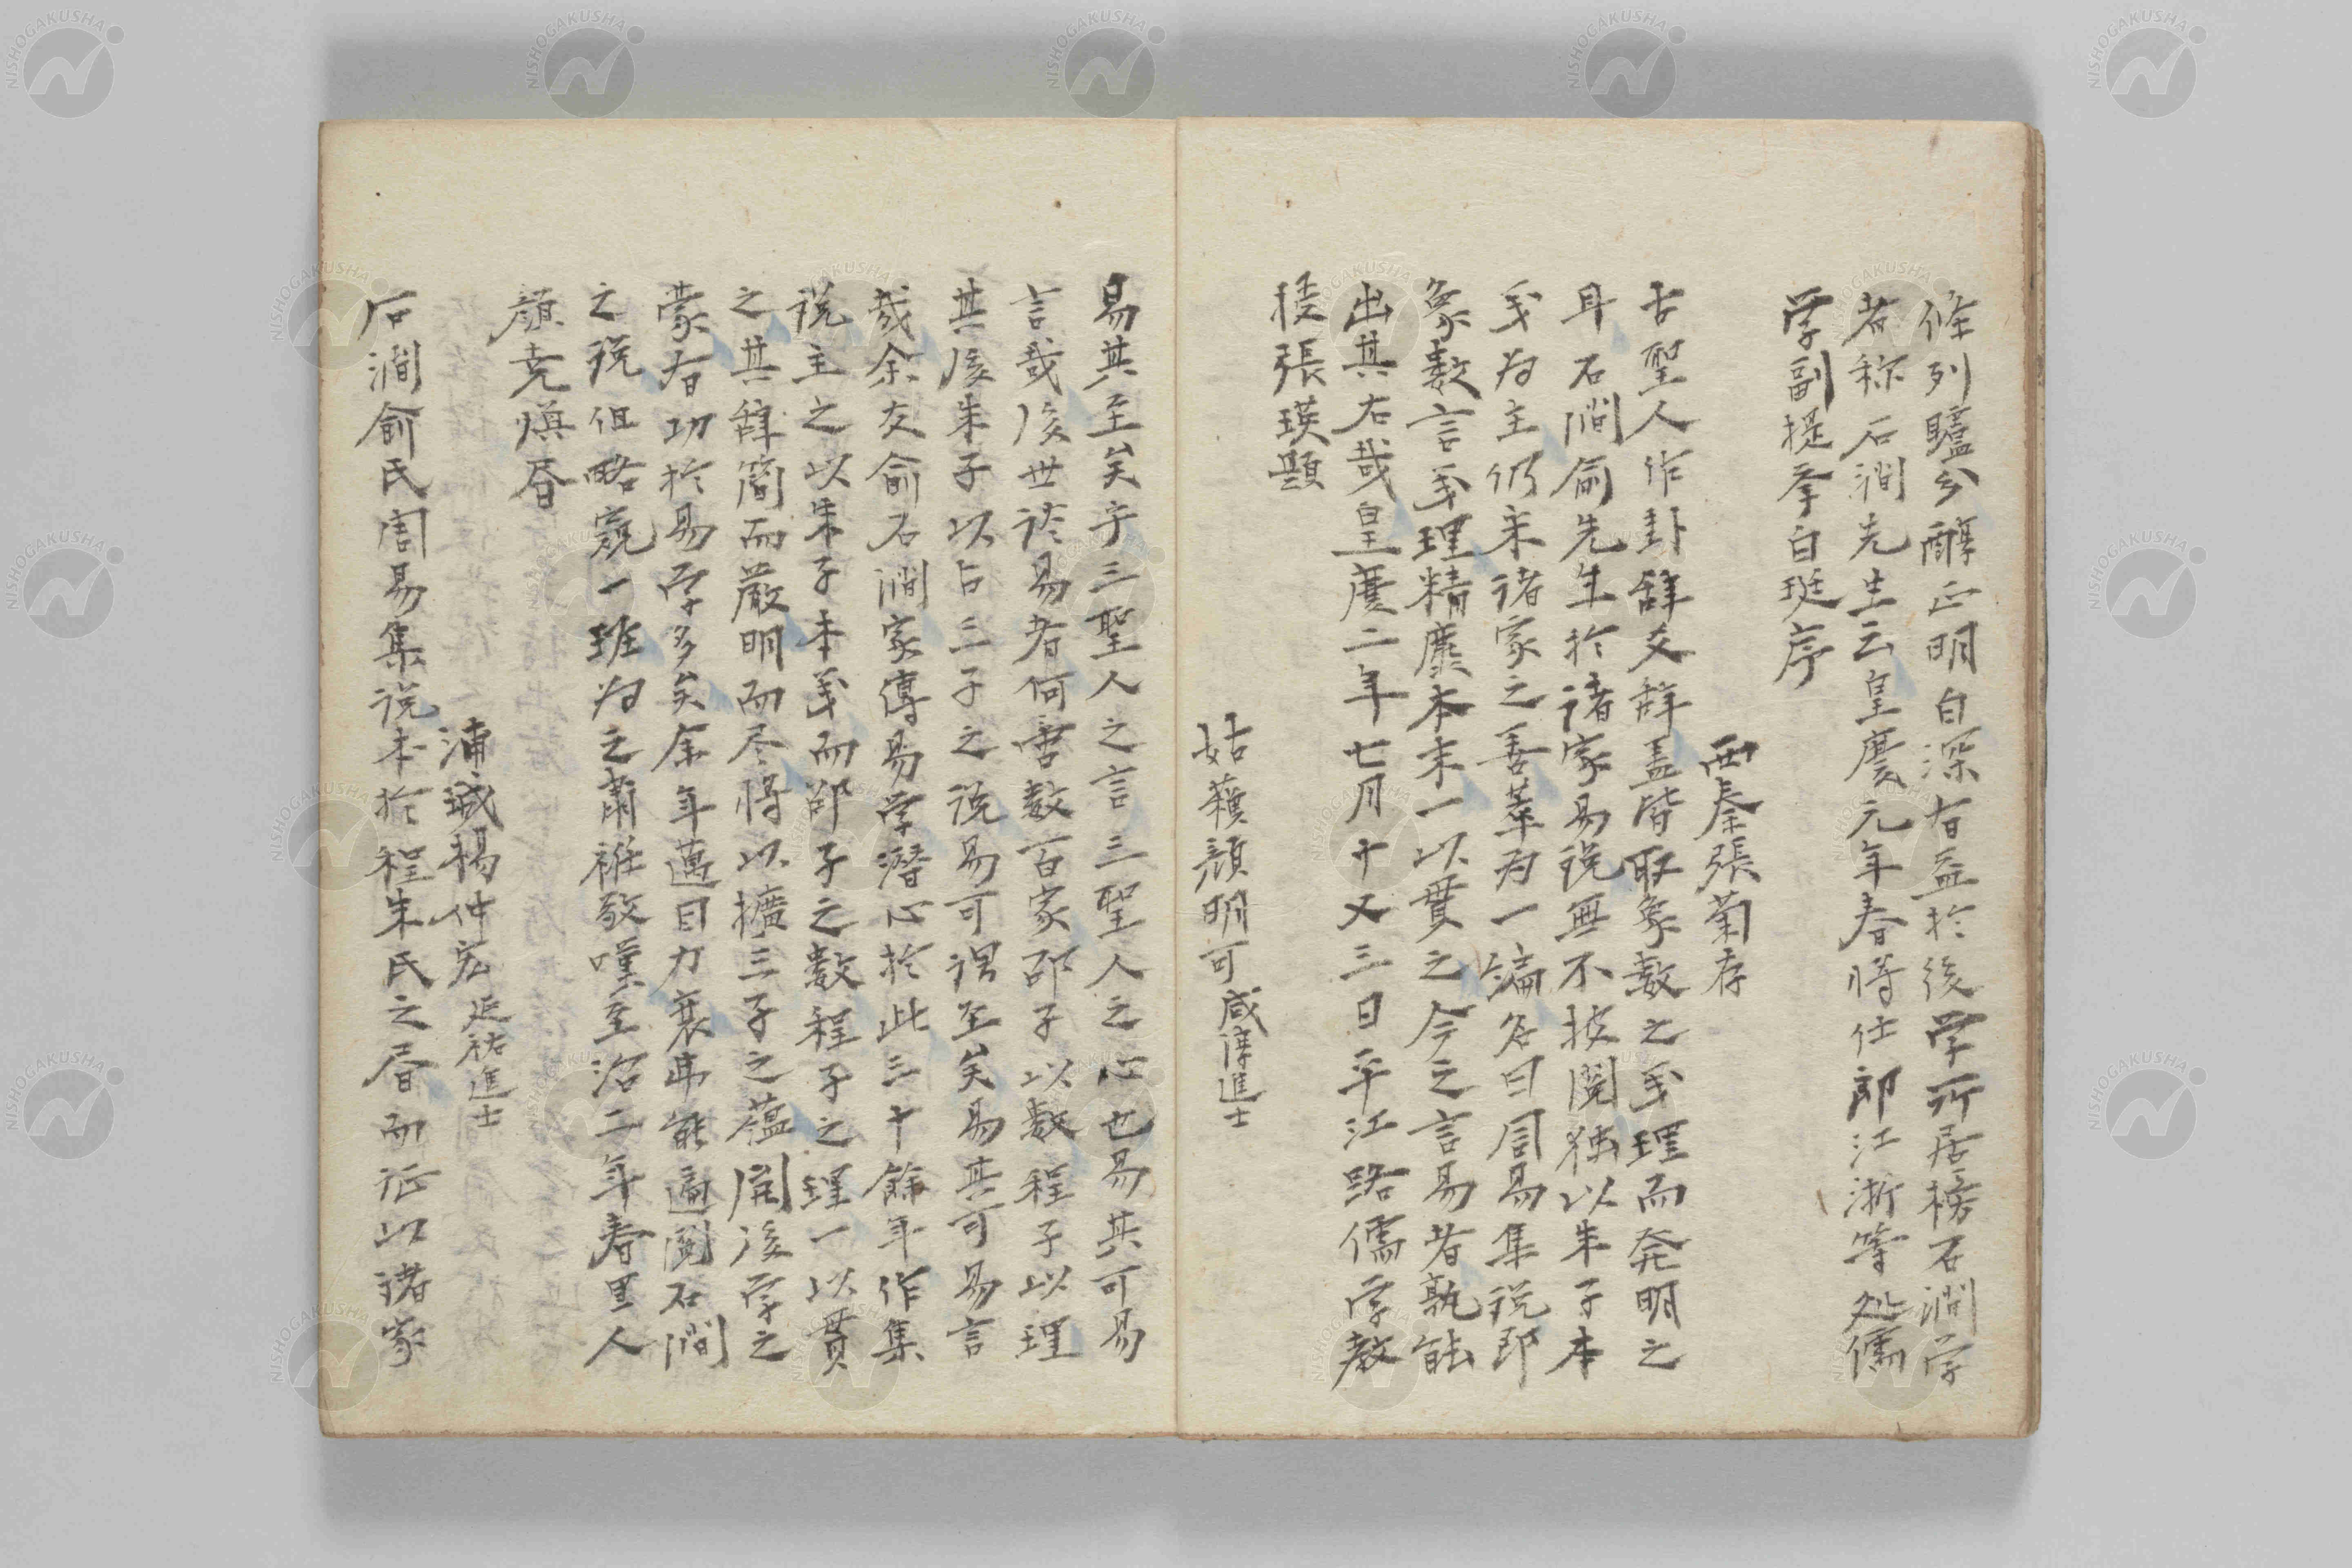 條列臚分醇正明白深有益於後学所居榜石澗学
者称石澗先生云皇慶元年春将仕郎江浙等処儒
学副提挙白珽序
西秦張菊存
古聖人作卦辞爻辞盖皆取象数之義理而発明之
耳石澗俞先生於諸家易説無不披閲独以朱子本
義为主仍采諸家之善萃为一編名曰周易集説即
象数言義理精麤本末一以貫之今之言易者孰能
出其右哉皇慶二年七月十又三日平江路儒学教
授張瑛題
姑蘓顔明可咸淳進士
易其至矣乎三聖人之言三聖人之心也易其可易
言哉後世談易者何啻数百家邵子以数程子以理
其後朱子以占三子之説易可謂至矣易其可易言
哉余友俞石澗家傳易学潜心於此三十餘年作集
説主之以朱子本義而邵子之数程子之理一以貫
之其辞簡而嚴明而尽将以擴三子之蘊開後学之
蒙有功於易学多矣余年邁目力衰弗能遍閲石澗
之説但略窺一班为之肅衽敬嘆至治二年春里人
顔尭煥昏
浦城楊仲宏延祐進士
石澗俞氏周易集説本於程朱氏之昏而証以諸家